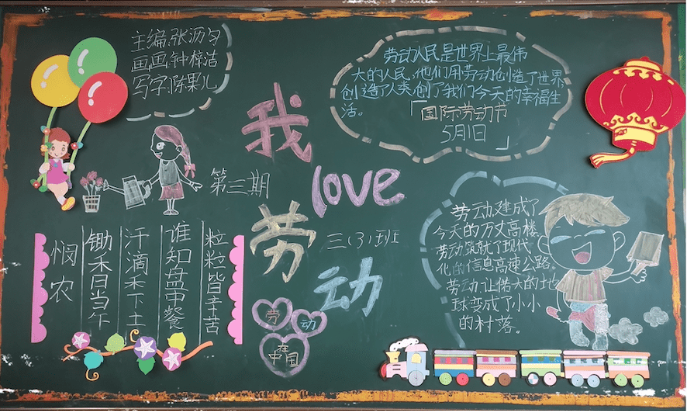 主编,张沥匀
画画,钟梓洁
写字,陈果儿
第三期
我
love
劳动
三(3)班
劳动人民是世界上最伟
大的人民,他们用劳动创造了世界
创造了人类,创了我们今天的幸福生
活。
「国际劳动节
5月1日」
悯农
锄禾日当午
汗滴禾下土
谁知盘中餐
粒粒皆辛苦
劳 动
中国
劳动建成了
今天的万丈高楼,
劳动筑就了现代
化的信息高速公路。
劳动让偌大的地
球变成了小小
的村落。